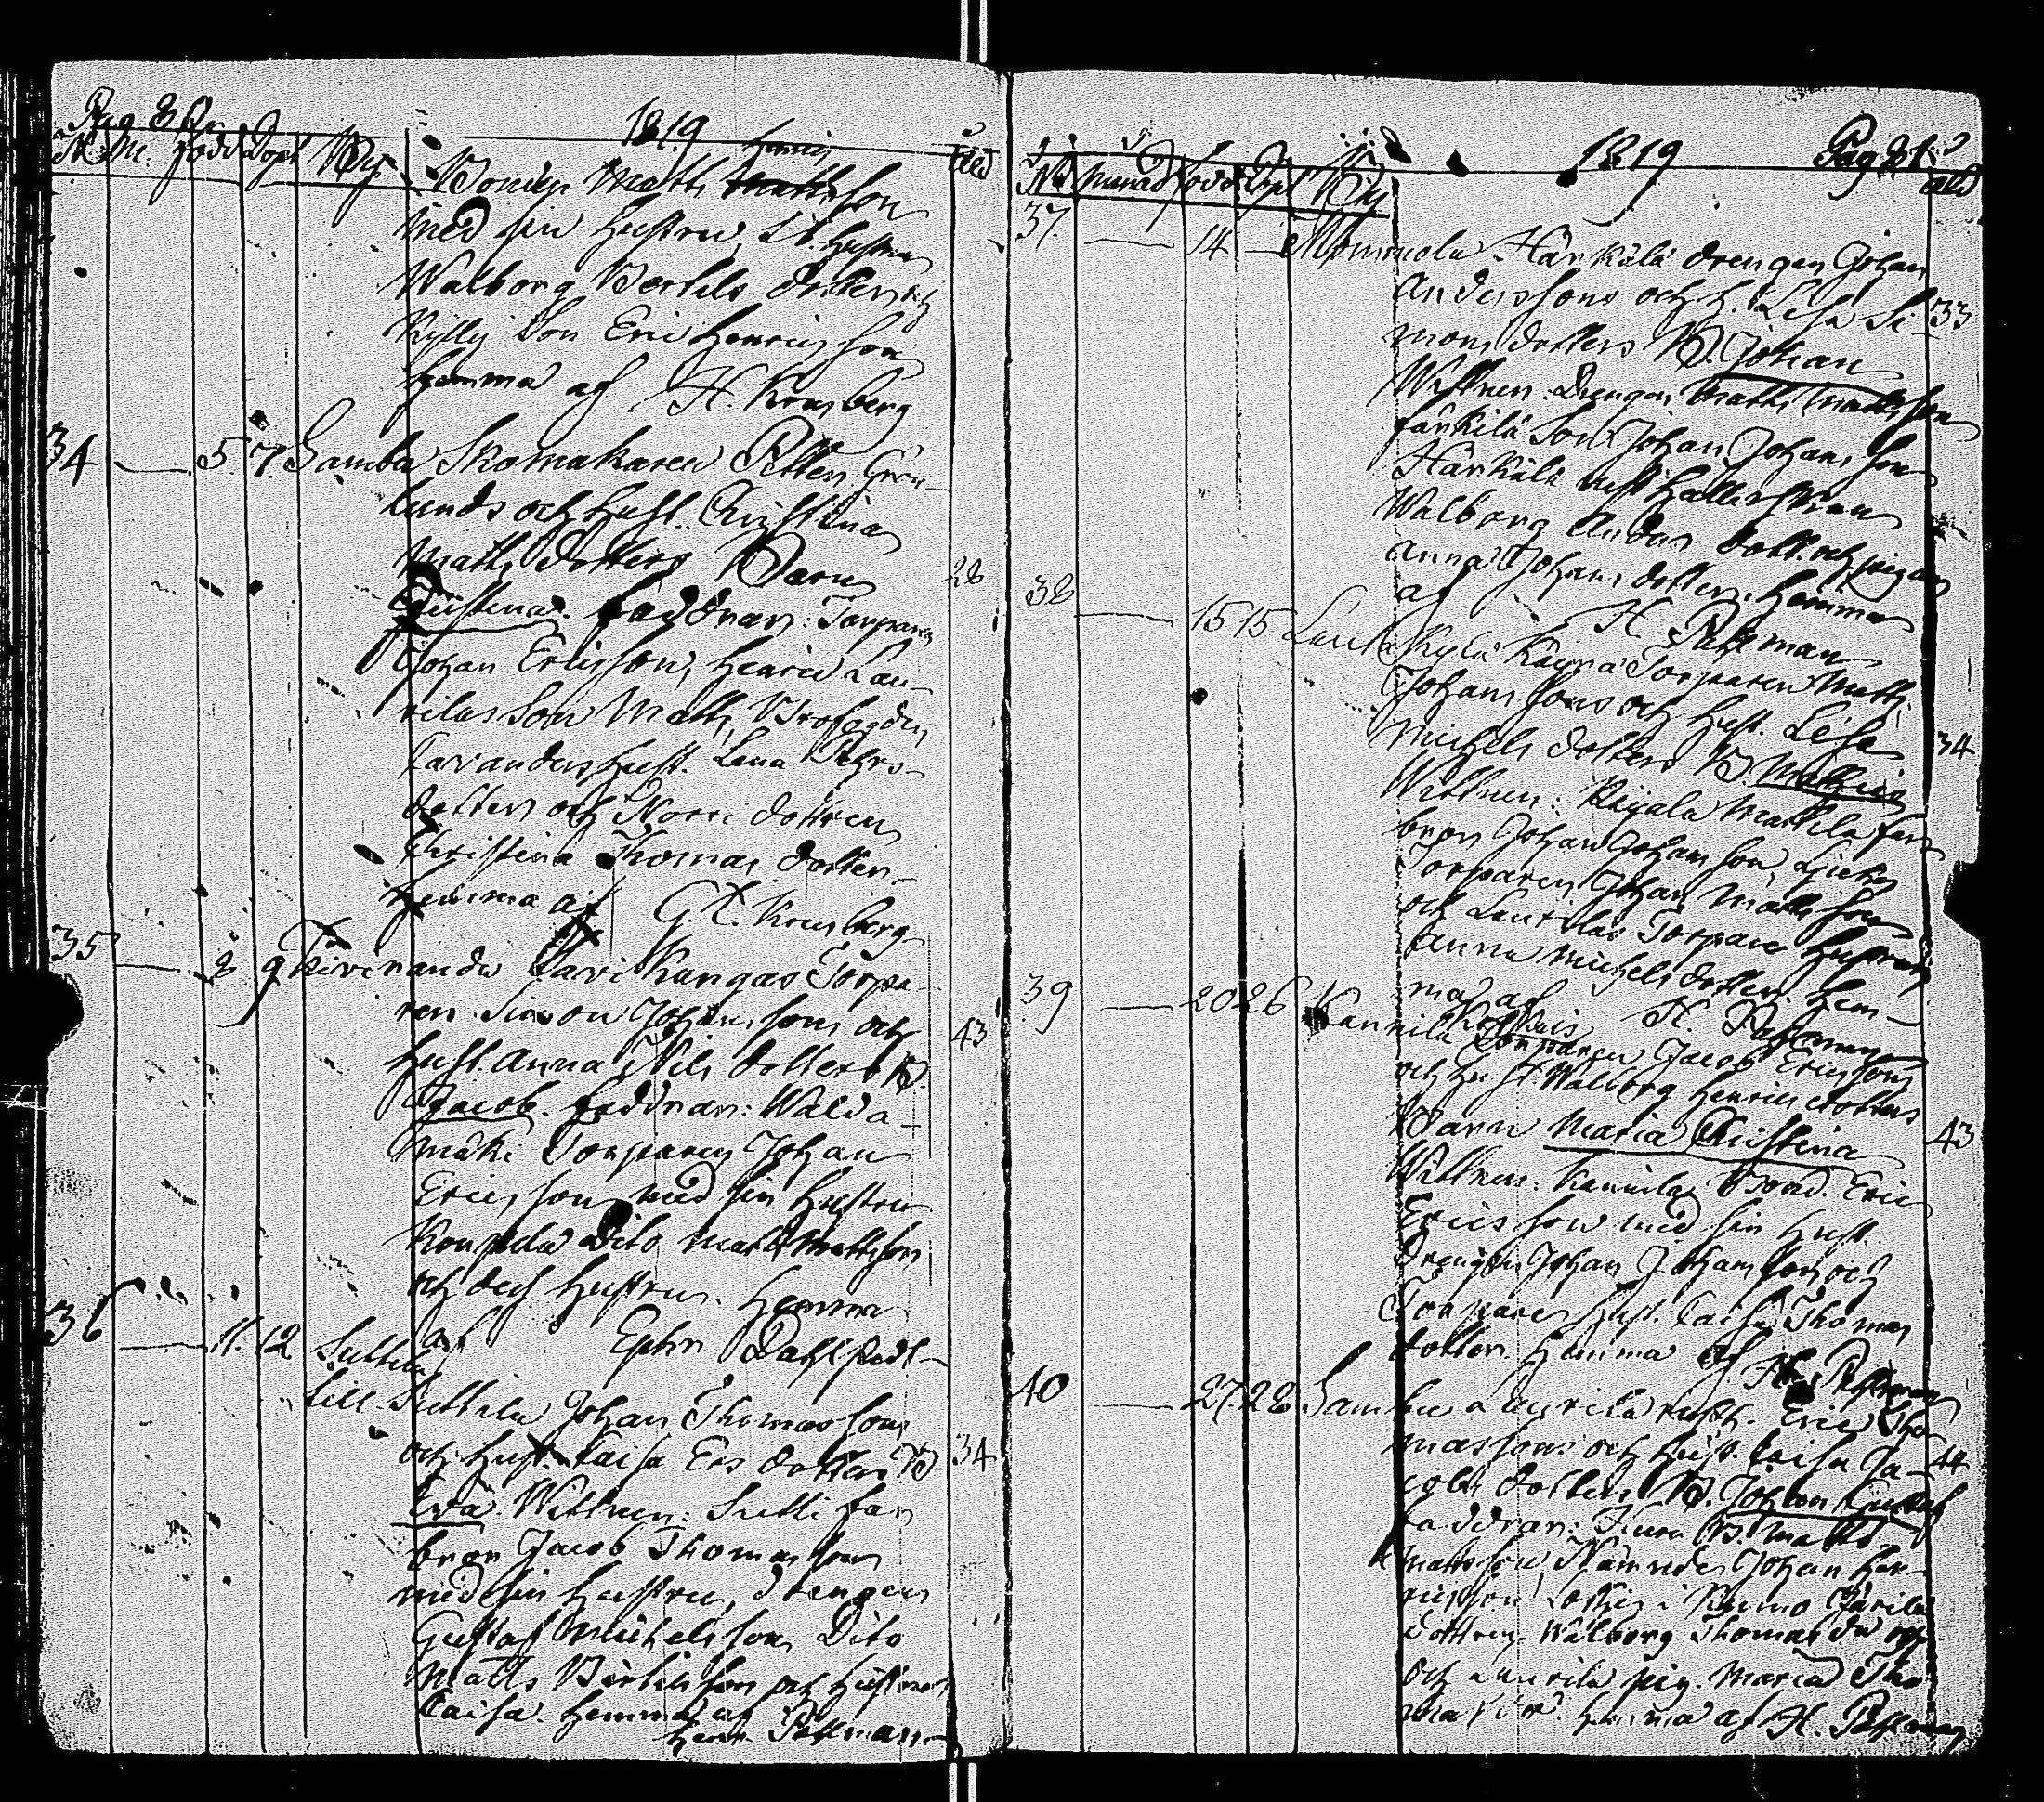 Pag 80
1819
N M. född Döpt By
åld
Henric
Bonden Matts Mattsson
med sin hustru, St. Hustru
Walborg Bertils dotter och
Kylli Son Eric Henricsson
hemma af H Kreuberg
34 — 5 7 Samba Skomakaren Petter Grön-
lunds och Hust. Christina
Matts dotters Barn 28
Christina. faddrar: Torparen
Johan Ericsson, Henric Lau-
rilas Son Matts, Brofogden
Cavanders Hust. Lena Pehrs-
dotter och Norri dottren
Christina Thomas dotter
hemma af G. C. Kreuberg
35 — 8 9 Kivikangas Torpa-
ren Simon Johans sons och 43
Hust. Anna Nils dotters B.
Jacob. faddrar: Walda-
mäki Torparen Johan
Ericsson med sin Hustru
Konpela Dito Matts Mattsson
och dess Hustru. Hemma
af Ephr Dahlstedt
36 — 11. 12 Suttila
Lill Suttila Johan Thomassons
och Hust. Caisa Ers dotters B 34
Eva. Wittnen: Sutti far
bror Jacob Thomasson
med sin Hustru, drengen
Gustaf Michelsson Dito
Matts Bertilsson och Hustrun
Caisa. hemma af
Henr. Pettman
1819
Pag 81
No månad född Döpt By
åld
37. — 14 — Mommola Härkälä drengen Johan
Anderssons och h. Lisa Si- 33
mons dotters B. Johan
Wittnen Drengen Matts Mattsson
Son Johan Johansson
Härkälä rusthållerskan
Walborg Anders dotter och pigan
Anna Johans dotter. hemma
af H Pettman
38 — 15 15 Lauta Kylä Torparen Matts
Johanssons och Hust. Lisa
Michels dotters B. Matthias 34
Wittnen: Rijala Mattila far
bror Johan Johansson,
Torparen Johan Mattsson
och Laurilas Torpare Hustru
Anna Michels dotter. Hem-
ma af H. Pettman
39 — 20 26 Kannila Torparen Jacob Ericssons
och Hust. Walborg Henrics dotters
Barn Maria Christina 43
Wittnen: Kannila Bond. Eric
Ericsson med sin Hust
Drengen Johan Johansson och
Torpare Hust. Caisa Thomas
dotter. hemma af H. Pettman
40 — 27. 28 Sambu Laurila rusth. Eric Tho-
massons och Hust. Caisa Ja- 44
cobs dotters B. Johan Gustaf
faddrar: B. Matts
Mattsson, Nämnde Johan Hen-
ricsson i Kumo
dottren Walborg Thomas dr
och Laurila pig. Maria Tho-
mas dr. hemma af H. Pettman